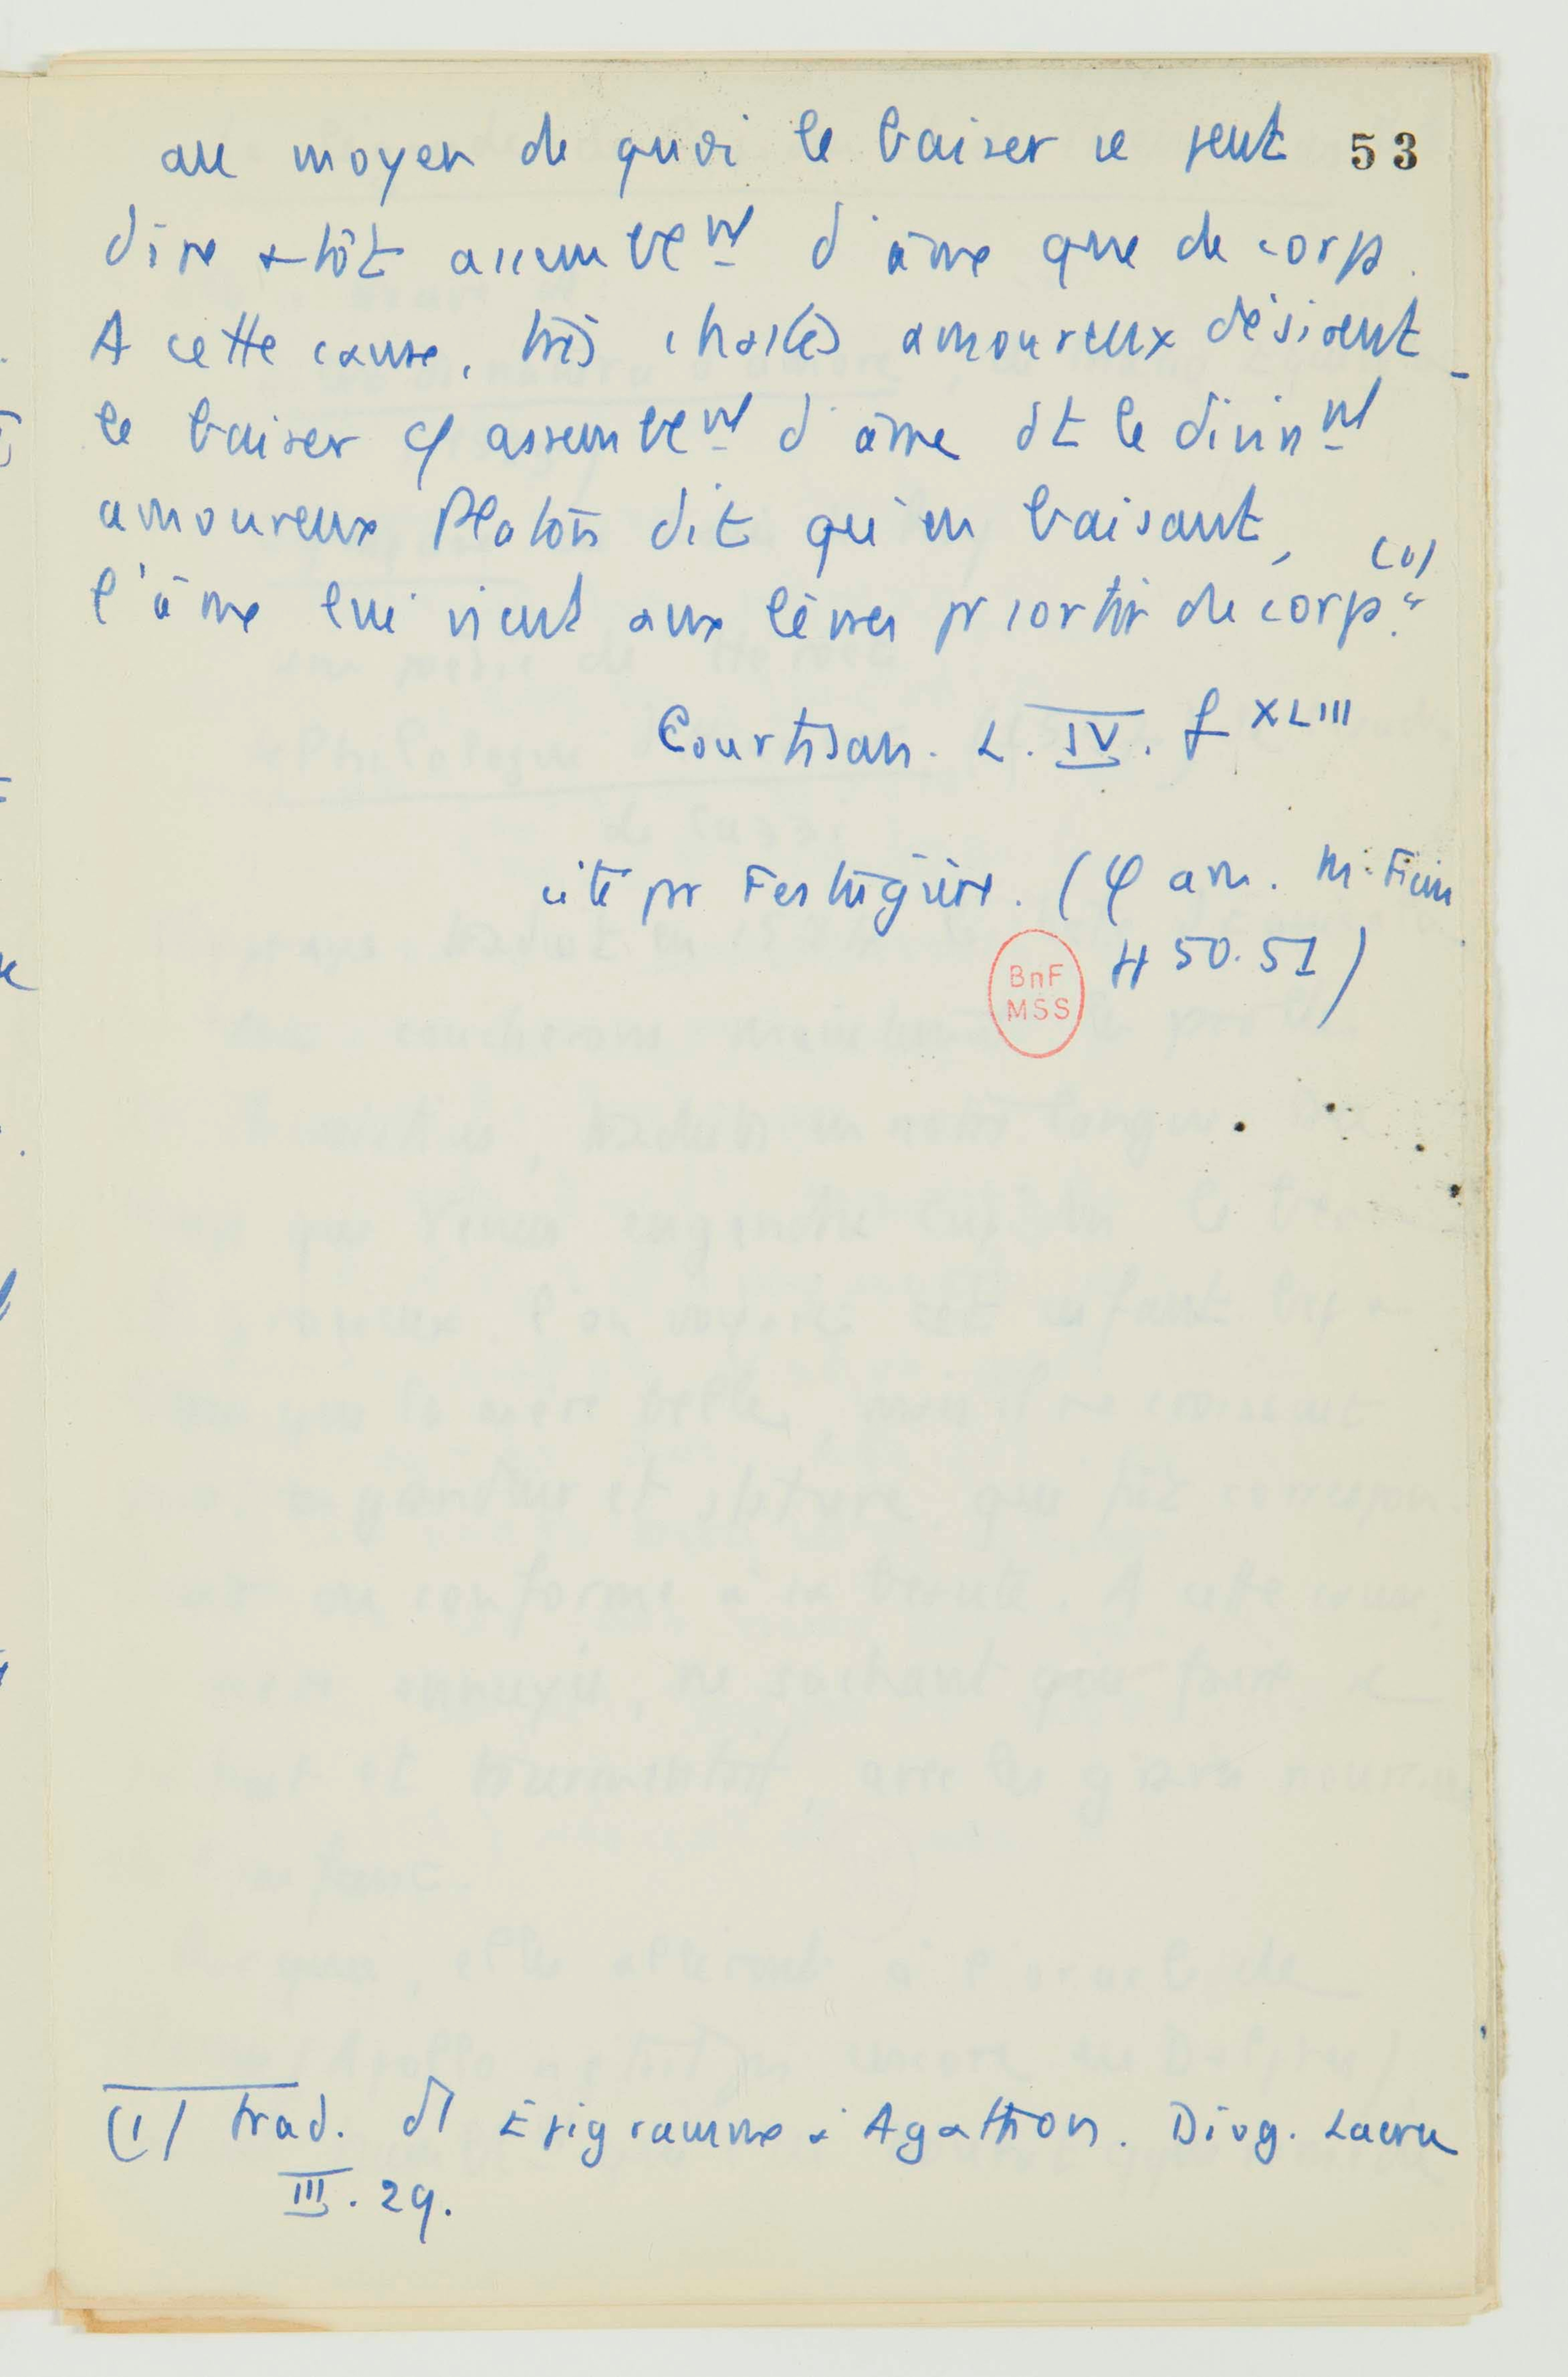 au moyen de quoi le baiser se peut 53
dire +tôt assemblem̲t̲ d'âme que de corps.
A cette cause, très chastes amoureux désirent
le baiser cf assemblem̲t̲ d'âme dt le divinm̲t̲
amoureux Platon dit qu'en baisant,
l'âme lui vient aux lèvres pr sortir de corps." (1)
Courtisan. L. IV. f XLIII
cité pr Festugière. (φ am. M. Ficin
50.51)
BnF
MSS
(1) trad. de Épigramme à Agathon. Diog. Laerce
III. 29.